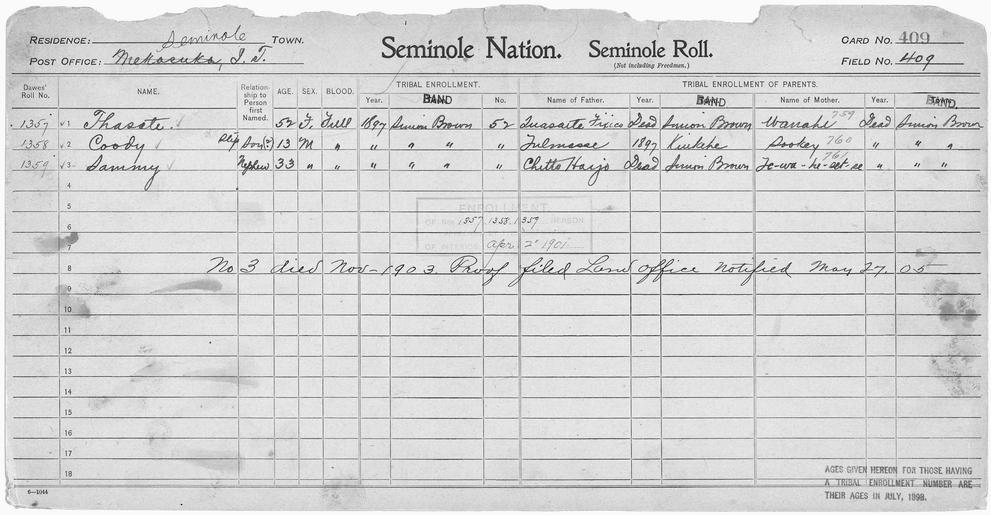 RESIDENCE: Seminole TOWN. Seminole Nation. Seminole Roll. CARD NO. 409
POST OFFICE: Mekasuka, I. T. (Not including Freedmen.) FIELD NO. 409
Dawes' Roll No. NAME. Relationship to Person first Named. AGE. SEX. BLOOD. TRIBAL ENROLLMENT. TRIBAL ENROLLMENT OF PARENTS.
Year. BAND No. Name of Father. Year. BAND Name of Mother. Year. BAND.
1357 1 Thasate. 52 F. Full 1897 Simon Brown 52 Quasarte Fixico Dead Simon Brown Wanahe 759 Dead Simon Brown
1358 2 Coody Step Son(?) 13 M " " " " " Fulmasse 1897 Kinkehe Sookey 760 " " "
1359 3 Sammy Nephew 33 " " " " " " Chitto Harjo Dead Simon Brown 761 " " "
4
5
ENROLLMENT
OF NOS. 1357, 1358, 1359 HEREON
6
7
OF INTERIOR Apr. 2 1901
8 No 3 died Nov - 1903. Proof filed Land office notified May 27. 05
9
10
11
12
13
14
15
16
17
18
AGES GIVEN HEREON FOR THOSE HAVING
A TRIBAL ENROLLMENT NUMBER ARE
THEIR AGES IN JULY, 1898.
6—1044